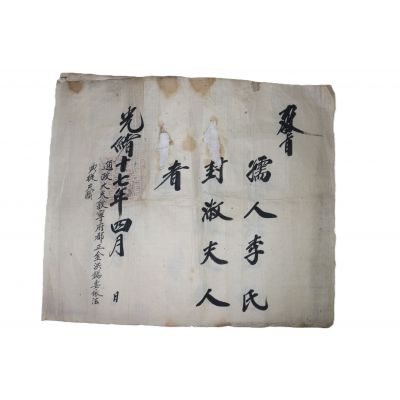 敎旨
孺人李氏
封淑夫人
者
光緖十七年四月 日
通政大夫敦寧府都正金洪錫妻依法
典從夫職